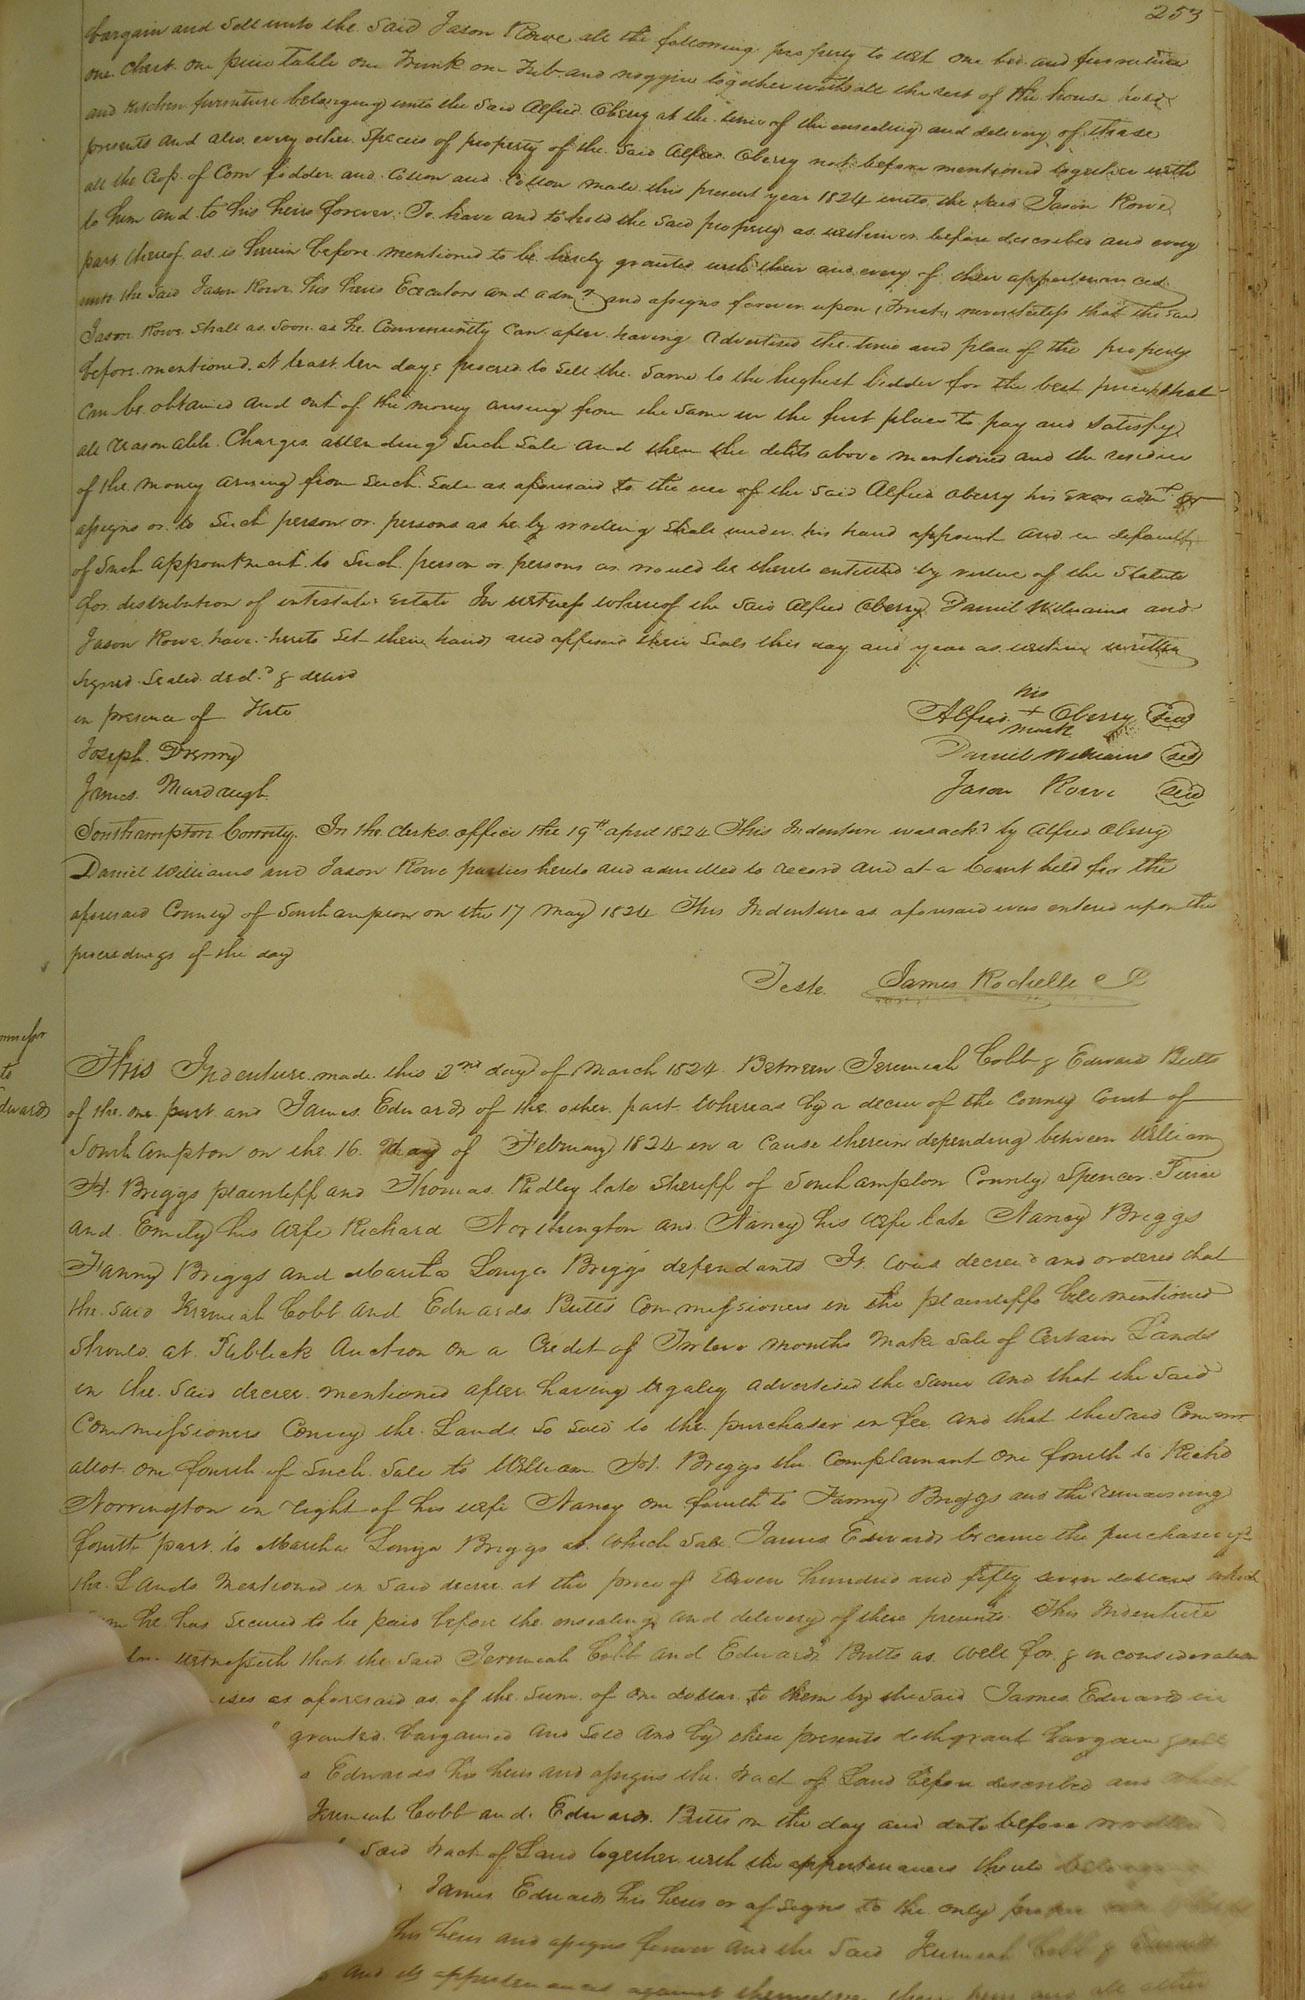 253
bargain and Sell unto the said Jason Rowe all the following property to wit one bed and furniture
one chest one pine table one Trunk one Tub and noggin together with all the rest of the house hold
and kitchen furniture belonging unto the said Alfred Oberry at the time of the ensealing and delivery of these
presents and also every other Species of property of the said Alfred Oberry not before mentioned together with
all the Crop of Corn fodder and Cotton and Cotton made this present year 1824 unto the said Jason Rowe
to him and to his heirs forever. To have and to hold the said property as within or before described and every
part thereof as is herein before mentioned to be hereby granted with their and every of their appertenances
unto the said Jason Rowe his heirs Executors and admrs and assigns forever upon Trust, nevertheless that the said
Jason Rowe shall as soon as he Conveniently Can after having advertised the time and place of the property
before mentioned at least ten days proceed to Sell the Same to the highest bidder for the best price that
Can be obtained and out of the money arising from the same in the first place to pay and satisfy
all reasonable Charges attending Such Sale and then the debts above mentioned and the residue
of the money arising from such sale as aforesaid to the use of the said Alfred Oberry his Exors admrs or
assigns or to Such person or persons as he by writing shall under his hand appoint and in default
of Such appointment to Such person or persons as would be thereto entitled by virtue of the Statute
for distribution of intestates estate In witness whereof the said Alfred Oberry Daniel Williams and
Jason Rowe have hereto Set their hands and affixed their Seals this day and year as within written
Signed Sealed &
in presence of
Joseph Drewry
James Murdaugh
his
Alfred + Oberry Seal
mark
Daniel Williams seal
Jason Rowe seal
Southampton County. In the Clerks office the 19th april 1824 This Indenture was ackd by Alfred Oberry
Daniel Williams and Jason Rowe parties hereto and admitted to record and at a Court held for the
aforesaid County of Southampton on the 17 May 1824 This Indenture as aforesaid was entered upon the
proceedings of the day
Teste. James Rochelle
to
Edwards
This Indenture made this 2nd day of March 1824 Between Jeremiah Cobb & Edward Butts
of the one part and James Edwards of the other part Whereas by a decree of the County Court of
Southampton on the 16 day of February 1824 in a Cause therein depending between William
H. Briggs plaintiff and Thomas Ridley late Sheriff of Southampton County Spencer
and Emily his wife Richard Northington and Nancy his wife late Nancy Briggs
Fanny Briggs and Martha Louiza Briggs defendants It was decreed and ordered that
the said Jeremiah Cobb and Edwards Butts Commissioners in the plaintiffs bill mentioned
Should at Publick Auction on a Credit of Twelve months make Sale of Certain Lands
in the said decree mentioned after having legally advertised the same and that the said
Commissioners Convey the Lands so sold to the purchaser in fee and that the said Commrs
allot one fourth of Such Sale to William H. Briggs the Complainant one fourth to Richd
Norrington in right of his wife Nancy one fourth to Fanny Briggs and the remaining
fourth part to Martha Louiza Briggs at which Sale James Edwards became the purchaser of
the Lands mentioned in said decree at the price of Eleven hundred and fifty seven dollars which
he has secured to be paid before the ensealing and delivery of these presents This Indenture
witnesseth that the said Jeremiah Cobb and Edwards Butts as well for & in consideration
as aforesaid as of the sum of one dollar to them by the said James Edwards in
granted bargained and sold and by these presents doth grant bargain &
Edwards his heirs and assigns the tract of Land before described and which
Jeremiah Cobb and Edwards Butts on the day and date before
said tract of Land together with the appertenances
James Edwards his heirs or assigns to the only
his heirs and assigns forever and the said Jeremiah Cobb &
and its appertenances against themselves their heirs and all other